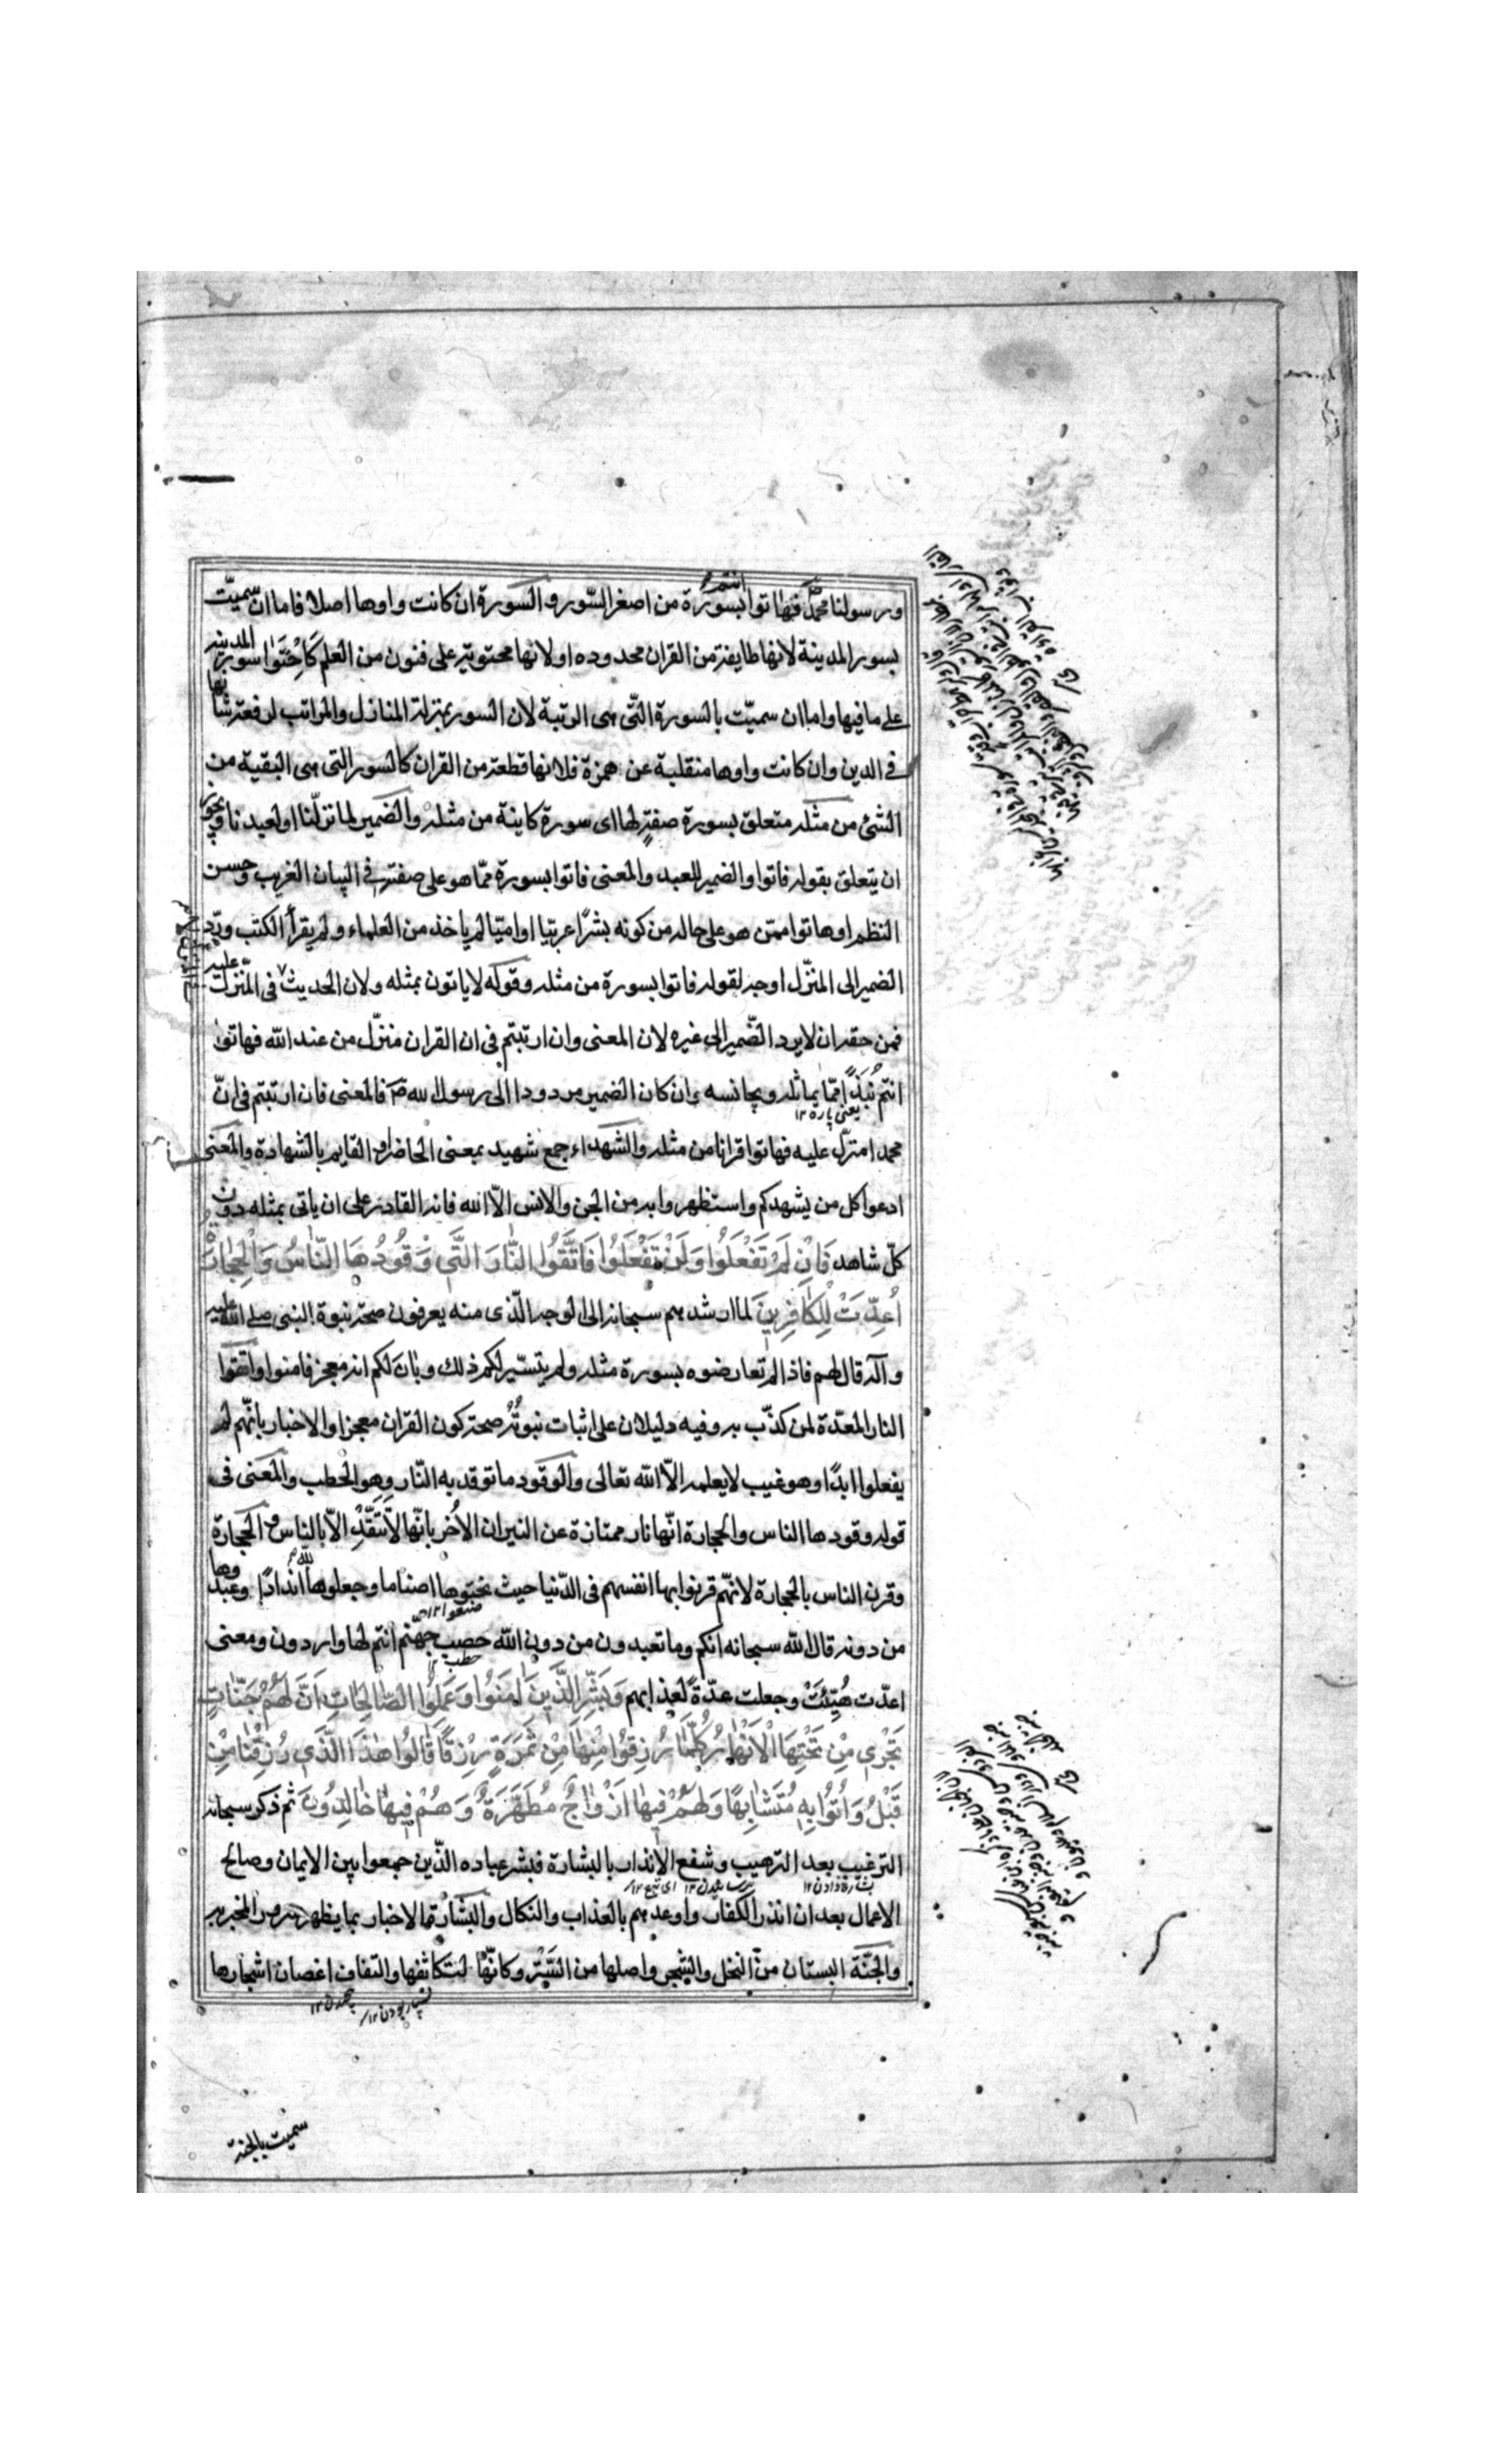 ورسولنا محمّد فهاتوا انتم بسورة من اصغر السّور و السورة ان كانت واوها اصلا فاما ان سميّت
بسور المدينة لانها طايفة من القران محدوده او لانها محتوية على فنون من العلم كاحتواء سور المدينة
على ما فيها واما ان سميّت بالسورة التّى هى الرتبة لان السور بمنزلة المنازل والمراتب لرفعة شانها
فى الدين وان كانت واوها منقلبة عن همزة فلانها قطعة من القران كالسور التى هى البقية من
الشئ من مثله متعلق بسورة صفة لها اى سورة كاينة من مثله والضمير لما نزّلنا او لعبدنا ويجوز
ان يتعلق بقوله فاتوا والضمير للعبد والمعنى فاتوا بسورة ممّا هو على صفته فى البيان الغريب وحسن
النظم او هاتوا ممن هو على حاله من كونه بشرًا عربيا او اميّا لم ياخذ من العلماء ولم يقرأ الكتب وردّ
الضمير الى المنزّل اوجه لقوله فاتوا بسورة من مثله وقوله لا ياتون بمثله ولان الحديث فى المنّزل عليه
فمن حقه ان لا يرد الضّمير الى غيره لان المعنى وان ارتبتم فى ان القران منزّل من عند الله فهاتوا
انتم نُبَذًا ممّا يماثله ويجانسه وان كان الضمير مردودا الى رسول الله ص فالمعنى فان ارتبتم فى انّ
يعنى پاره ۱۲
محمدا منزّل عليه فهاتوا قرانا من مثله والشهداء جمع شهيد بمعنى الحاضر او القايم بالشهادة والمعنى
ادعوا كل من يشهدكم واستظهروا به من الجن والانس الاّ الله فانه القادر على ان ياتى بمثله دون
كلّ شاهد فَاِنْ لَمْ تَفْعَلُوا وَلَنْ تَفْعَلُوا فَاتَّقُوا النَّارَ الَّتِي وَقُودُهَا النَّاسُ وَالْحِجَارَةُ
اُعِدَّتْ لِلْكَافِرِينَ لما ارشدهم سبحانه الى الوجه الّذى منه يعرفون صحة نبوة النبى صلى الله عليه
وآله قال لهم فاذا لم تعارضوه بسورة مثله ولم يتسّير لكم ذلك وبان لكم انه معجز فامنوا واتقوا
النار المعدّة لمن كذّب به وفيه دليلان على اثبات نبوته صحة كون القران معجزا والاخبار بانّهم لم
يفعلوا ابدًا وهو غيب لا يعلمه الاّ الله تعالى والوقود ما توقد به النّار وهو الحطب والمعنى فى
قوله وقودها الناس والحجارة انّها نار ممتازة عن النيران الاُخر بانّها لا تتّقد الاّ بالناس و الحجارة
وقرن الناس بالحجارة لانّهم قرنوا بها انفسهم فى الدّنيا حيث نحتوها اصناما وجعلوها لله اندادًا وعبدوها
من دونه قال الله سبحانه انكم وما تعبدون من دون الله حصب جهّنم انتم لها واردون ومعنى
حطب ۱۲
اعدّت هُيّئت وجعلت عدّة لعذابهم وَبَشِّرِ الَّذِينَ اٰمَنُوا وَعَمِلُوا الصَّالِحَاتِ اَنَّ لَهُمْ جَنَّاتٍ
تَجْرِي مِنْ تَحْتِهَا الْاَنْهَارُ كُلَّمَا رُزِقُوا مِنْهَا مِنْ ثَمَرَةٍ رِزْقًا قَالُوا هٰذَا الَّذِي رُزِقْنَا مِنْ
قَبْلُ وَاُتُوا بِهِ مُتَشَابِهًا وَلَهُمْ فِيهَا اَزْوَاجٌ مُطَهَّرَةٌ وَهُمْ فِيهَا خَالِدُونَ ثم ذكر سبحانه
الترغيب بعد الترهيب وشفع الانذار بالبشارة فبشر عباده الذّين جمعوا بين الايمان وصالح
الاعمال بعد ان انذر الكفار واوعدهم بالعذاب والنكال والبشارة الاخبار بما يظهر سرور المخبر به
والجنّة البستان من النخل والشجر واصلها من السّتر وكانّها لتكاثفها والتفاف اغصان اشجارها
سميت بالجنة